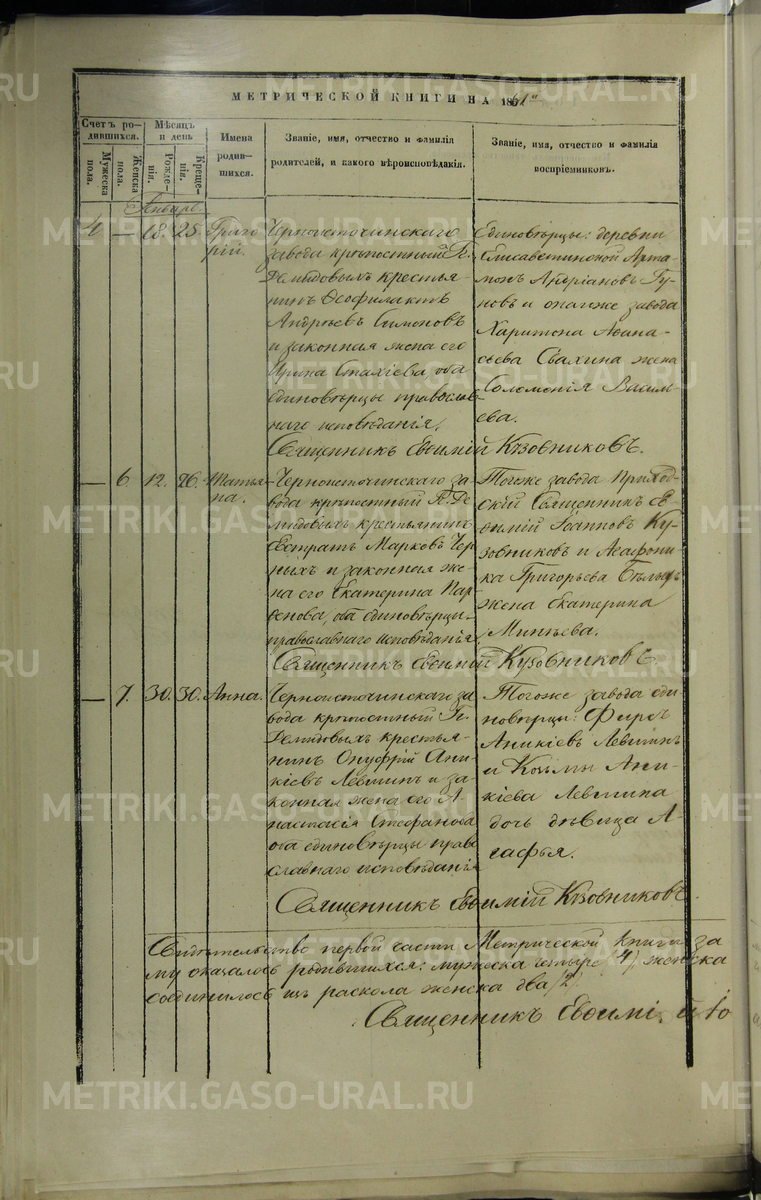 МЕТРИЧЕСКОЙ КНИГИ НА 1861й
Счетъ родившихся.
Мужеска пола.
Женска пола.
Мѣсяцъ и день
Рожденія.
Крещенія.
Имена родившихся.
Званіе, имя, отчество и фамилія
родителей, и какого вѣроисповѣданія.
Званіе, имя, отчество и фамилія
воспріемниковъ.
Январь.
4 — 18. 25. Григорій.
Черноисточинскаго
завода крѣпостный П.
Демидовыхъ крестья-
нинъ Ѳеофилактъ
Андреевъ Симоновъ
и законная жена его
Ирина Стахіева, оба
единовѣрцы православ-
наго исповѣданія.
Единовѣрцы: деревни
Елисаветинской Арта-
монъ Андріановъ
и онагоже завода
Харитона Аѳана-
сьева жена
Соломонія Василь-
ева.
Священникъ Евѳимій Кузовниковъ.
— 6. 12. 26. Татьяна.
Черноисточинскаго за-
вода крѣпостный П. Де-
мидовыхъ крестьянинъ
Евстратъ Марковъ Чер-
ныхъ и законная же-
на его Екатерина Пар-
ѳенова, оба единовѣрцы
православнаго исповѣданія
Тогоже завода Приход-
скій Священникъ Ев-
ѳимій Іоанновъ Ку-
зовниковъ и
Григорьева
жена Екатерина
Минѣева.
Священникъ Евѳимій Кузовниковъ.
— 7. 30. 30. Анна.
Черноисточинскаго за
вода крѣпостный П.
Демидовыхъ крестья-
нинъ Онуфрій Ани-
кіевъ Левшинъ и за-
конная жена его А-
настасія Стефанова
оба единовѣрцы право
славнаго исповѣданія
Тогоже завода еди-
новѣрцы: Фирсъ
Аникіевъ Левшинъ
и Козьмы Ани-
кіева Левшина
дочь дѣвица А-
гафья.
Священникъ Евѳимій Кузовниковъ
первой части Метрической книги за
му оказалось родившихся: мужеска четыре /4/, женска
соединилось изъ раскола женска два /2/
Священникъ Евѳимі
METRIKI.GASO-URAL.RU